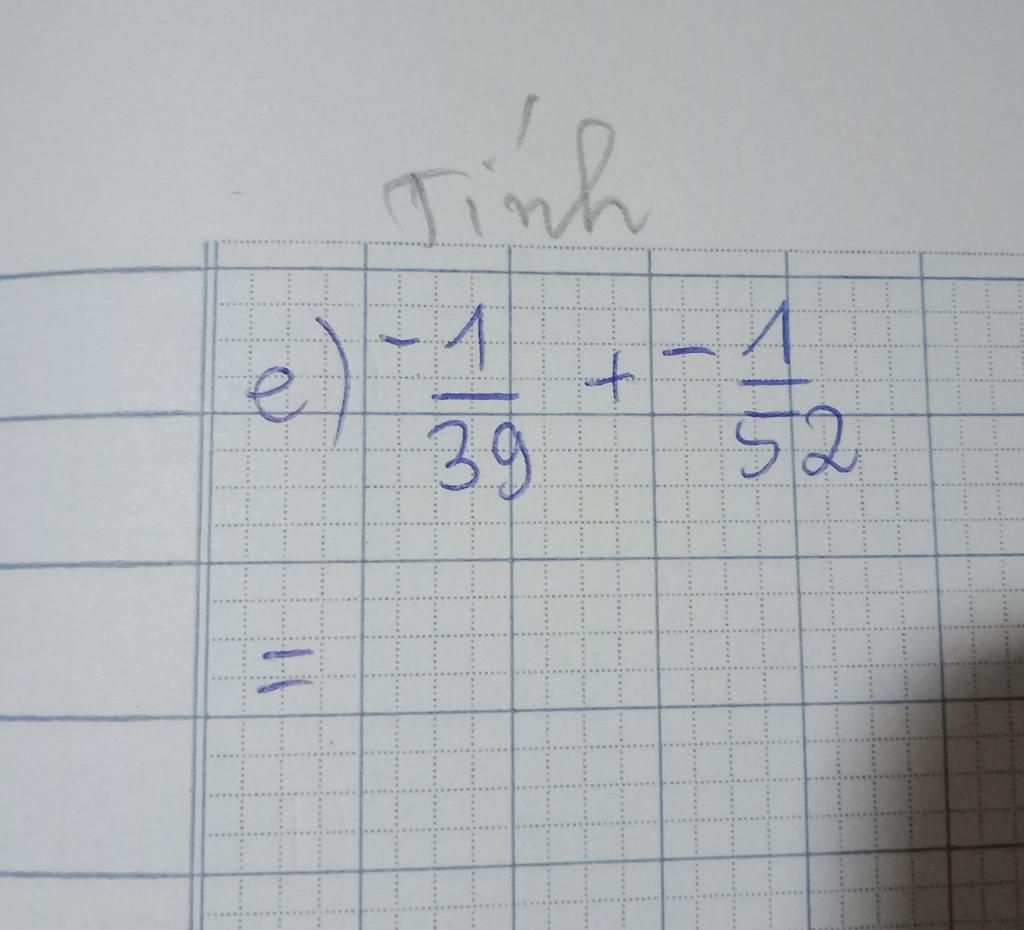 Tính
e) -1/39 + -1/52
=